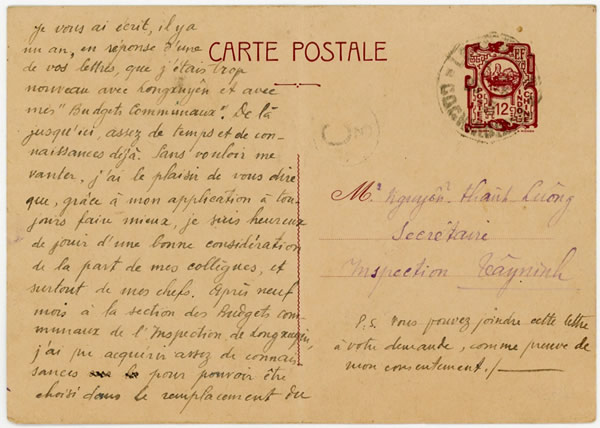 Je vous ai écrit, il y a
un an, en réponse d'une
de vos lettres, que j'étais trop
nouveau avec Longxuyên et avec
mes "Budgets Communaux". De là
jusqu'ici, assez de temps et de con-
naissances déjà. Sans vouloir me
vanter, j'ai le plaisir de vous dire
que, grâce à mon application à tou-
jours faire mieux, je suis heureux
de jouir d'une bonne considération
de la part de mes collègues, et
surtout de mes chefs. Après neuf
mois à la section des Budgets com-
munaux de l'Inspection de Longxuyên,
j'ai pu acquérir assez de connais-
sances pour pouvoir être
choisi dans le remplacement du
CARTE POSTALE
RF
POSTES
INDO
CHINE
12c
Mr Nguyên Thành Luông
Secrétaire
Inspection Tâyninh
P.S. Vous pouvez joindre cette lettre
à votre demande, comme preuve de
mon consentement./